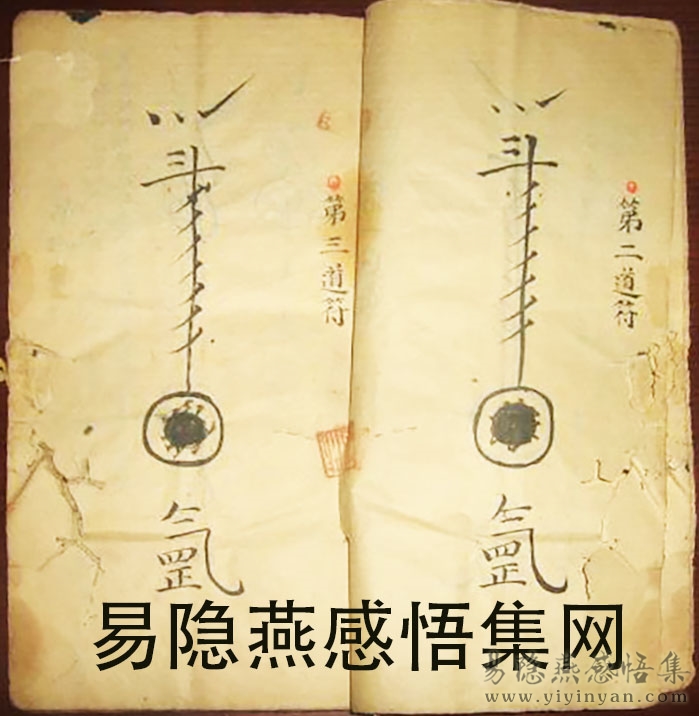 第二道符
斗
第三道符
斗
易隐燕感悟集网
易隐燕感悟集
www.yiyinyan.com